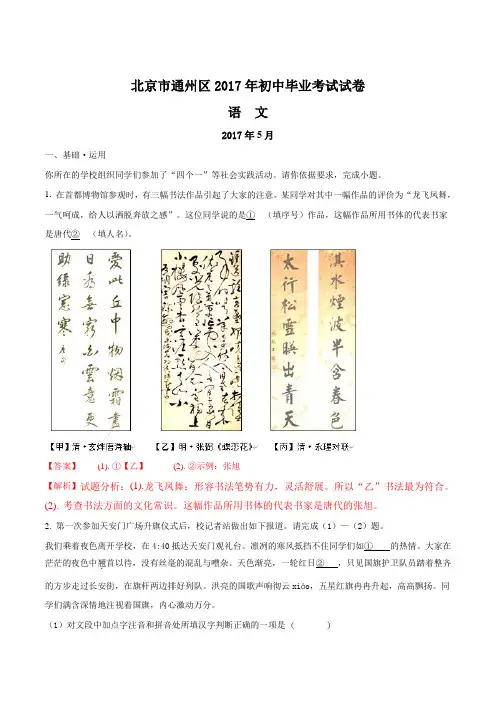 北京市通州区2017年初中毕业考试试卷
语 文
2017年5月
一、基础·运用
你所在的学校组织同学们参加了“四个一”等社会实践活动。请你依据要求，完成小题。
1. 在首都博物馆参观时，有三幅书法作品引起了大家的注意。某同学对其中一幅作品的评价为“龙飞凤舞，
一气呵成，给人以洒脱奔放之感”。这位同学说的是① （填序号）作品，这幅作品所用书体的代表书家
是唐代② （填人名）。
爱此丘中物烟霜尽
日看无穷白云意更
助绿窗寒
淇水烟波半含春色
太行松雪映出青天
【甲】清·玄烨唐诗轴
【乙】明·张弼《蝶恋花》
【丙】清·永瑆对联
【答案】 (1). ①【乙】 (2). ②示例：张旭
【解析】试题分析：(1).龙飞凤舞：形容书法笔势有力，灵活舒展。所以“乙”书法最为符合。
(2). 考查书法方面的文化常识。这幅作品所用书体的代表书家是唐代的张旭。
2. 第一次参加天安门广场升旗仪式后，校记者站做出如下报道。请完成（1）—（2）题。
我们乘着夜色离开学校，在4:40抵达天安门观礼台。凛冽的寒风抵挡不住同学们如① 的热情。大家在
茫茫的夜色中翘首以待，没有丝毫的混乱与嘈杂。天色渐亮，一轮红日② ，只见国旗护卫队员踏着整齐
的方步走过长安街，在旗杆两边排好列队。洪亮的国歌声响彻云xiāo，五星红旗冉冉升起，高高飘扬。同
学们满含深情地注视着国旗，内心激动万分。
（1）对文段中加点字注音和拼音处所填汉字判断正确的一项是 ( )